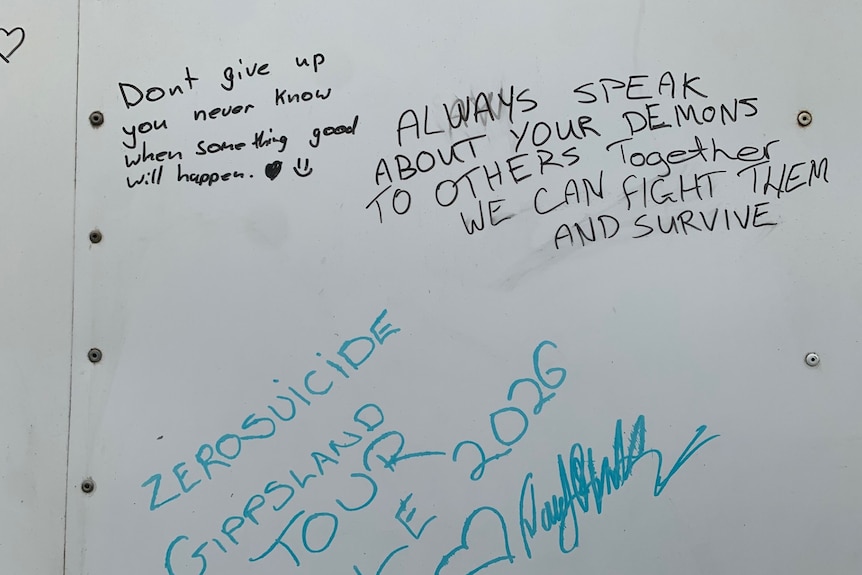 Dont give up
you never know
when something good
will happen. ♥ :)
ALWAYS SPEAK
ABOUT YOUR DEMONS
TO OTHERS Together
WE CAN FIGHT THEM
AND SURVIVE
ZEROSUICIDE
GIPPSLAND
TOUR
2026